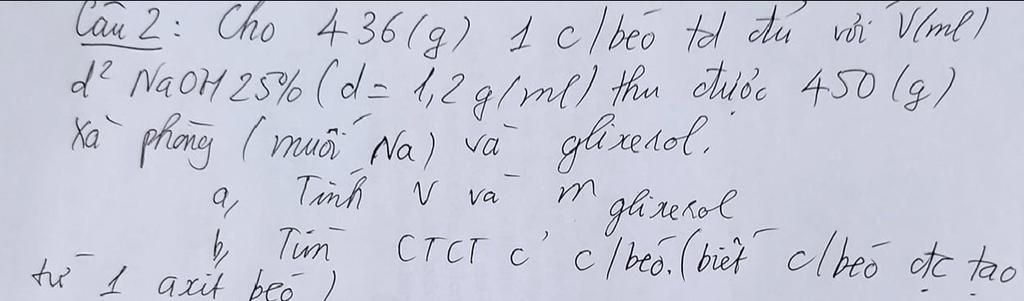 Câu 2: Cho 436(g) 1 c/béo td đủ với V(ml)
d² NaOH 25% (d = 1,2 g/ml) thu được 450 (g)
Xà phòng (muối Na) và glixerol.
a, Tính V và m glixerol
b, Tìm CTCT c' c/béo. (biết c/béo đc tạo
từ 1 axit béo)